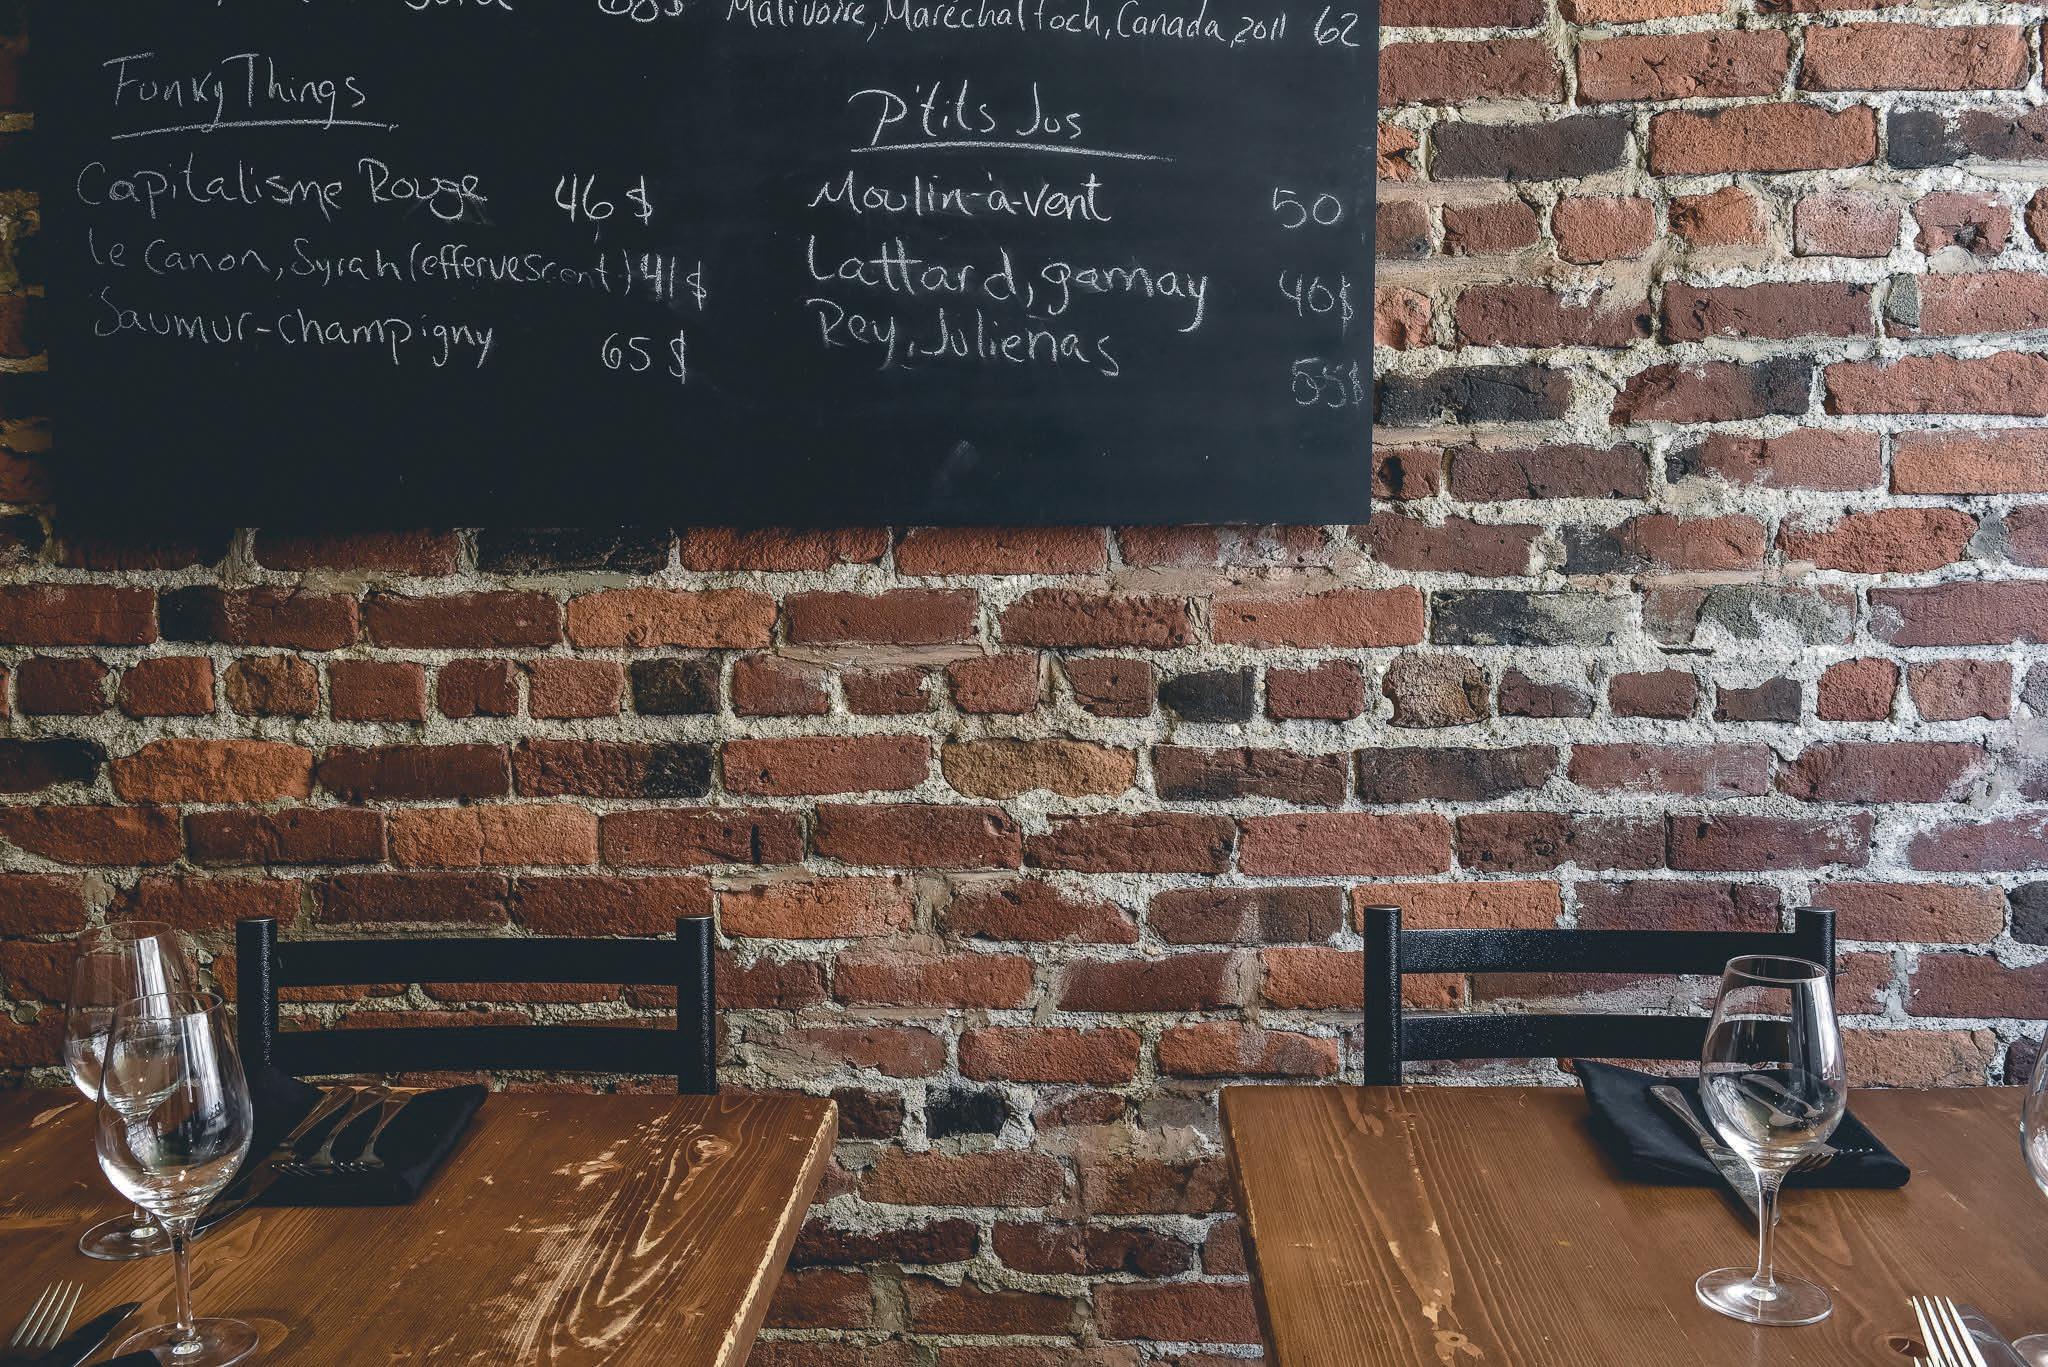 68$
Malivoire, Maréchal foch, Canada, 2011 62
Funky Things
Capitalisme Rouge 46$
le Canon, Syrah (effervescent) 41$
Saumur-champigny 65$
P'tits Jus
Moulin-à-vent 50
Lattard, gamay 40$
Rey, Julienas 55$